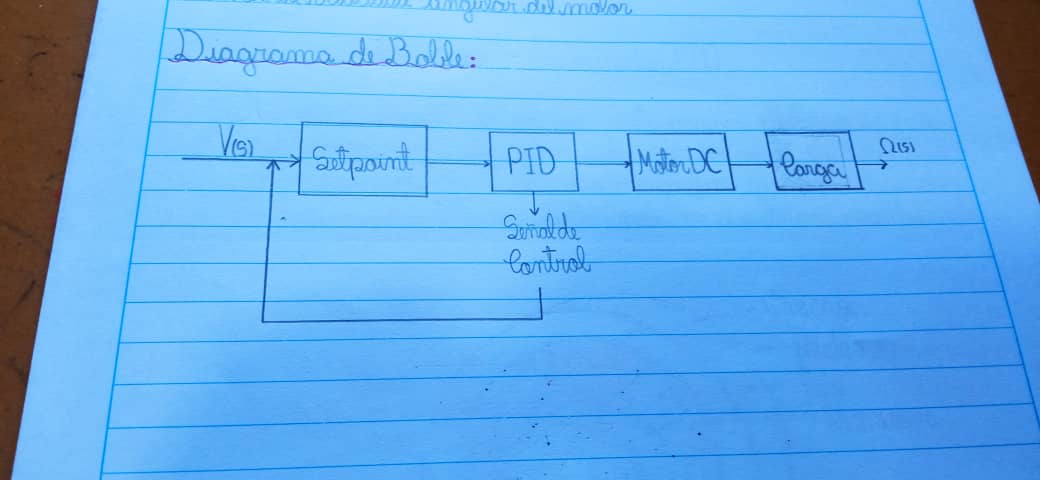 angular del motor
Diagrama de Boble:
V(s)
Setpoint
PID
Motor DC
Carga
Ω(s)
Señal de
Control